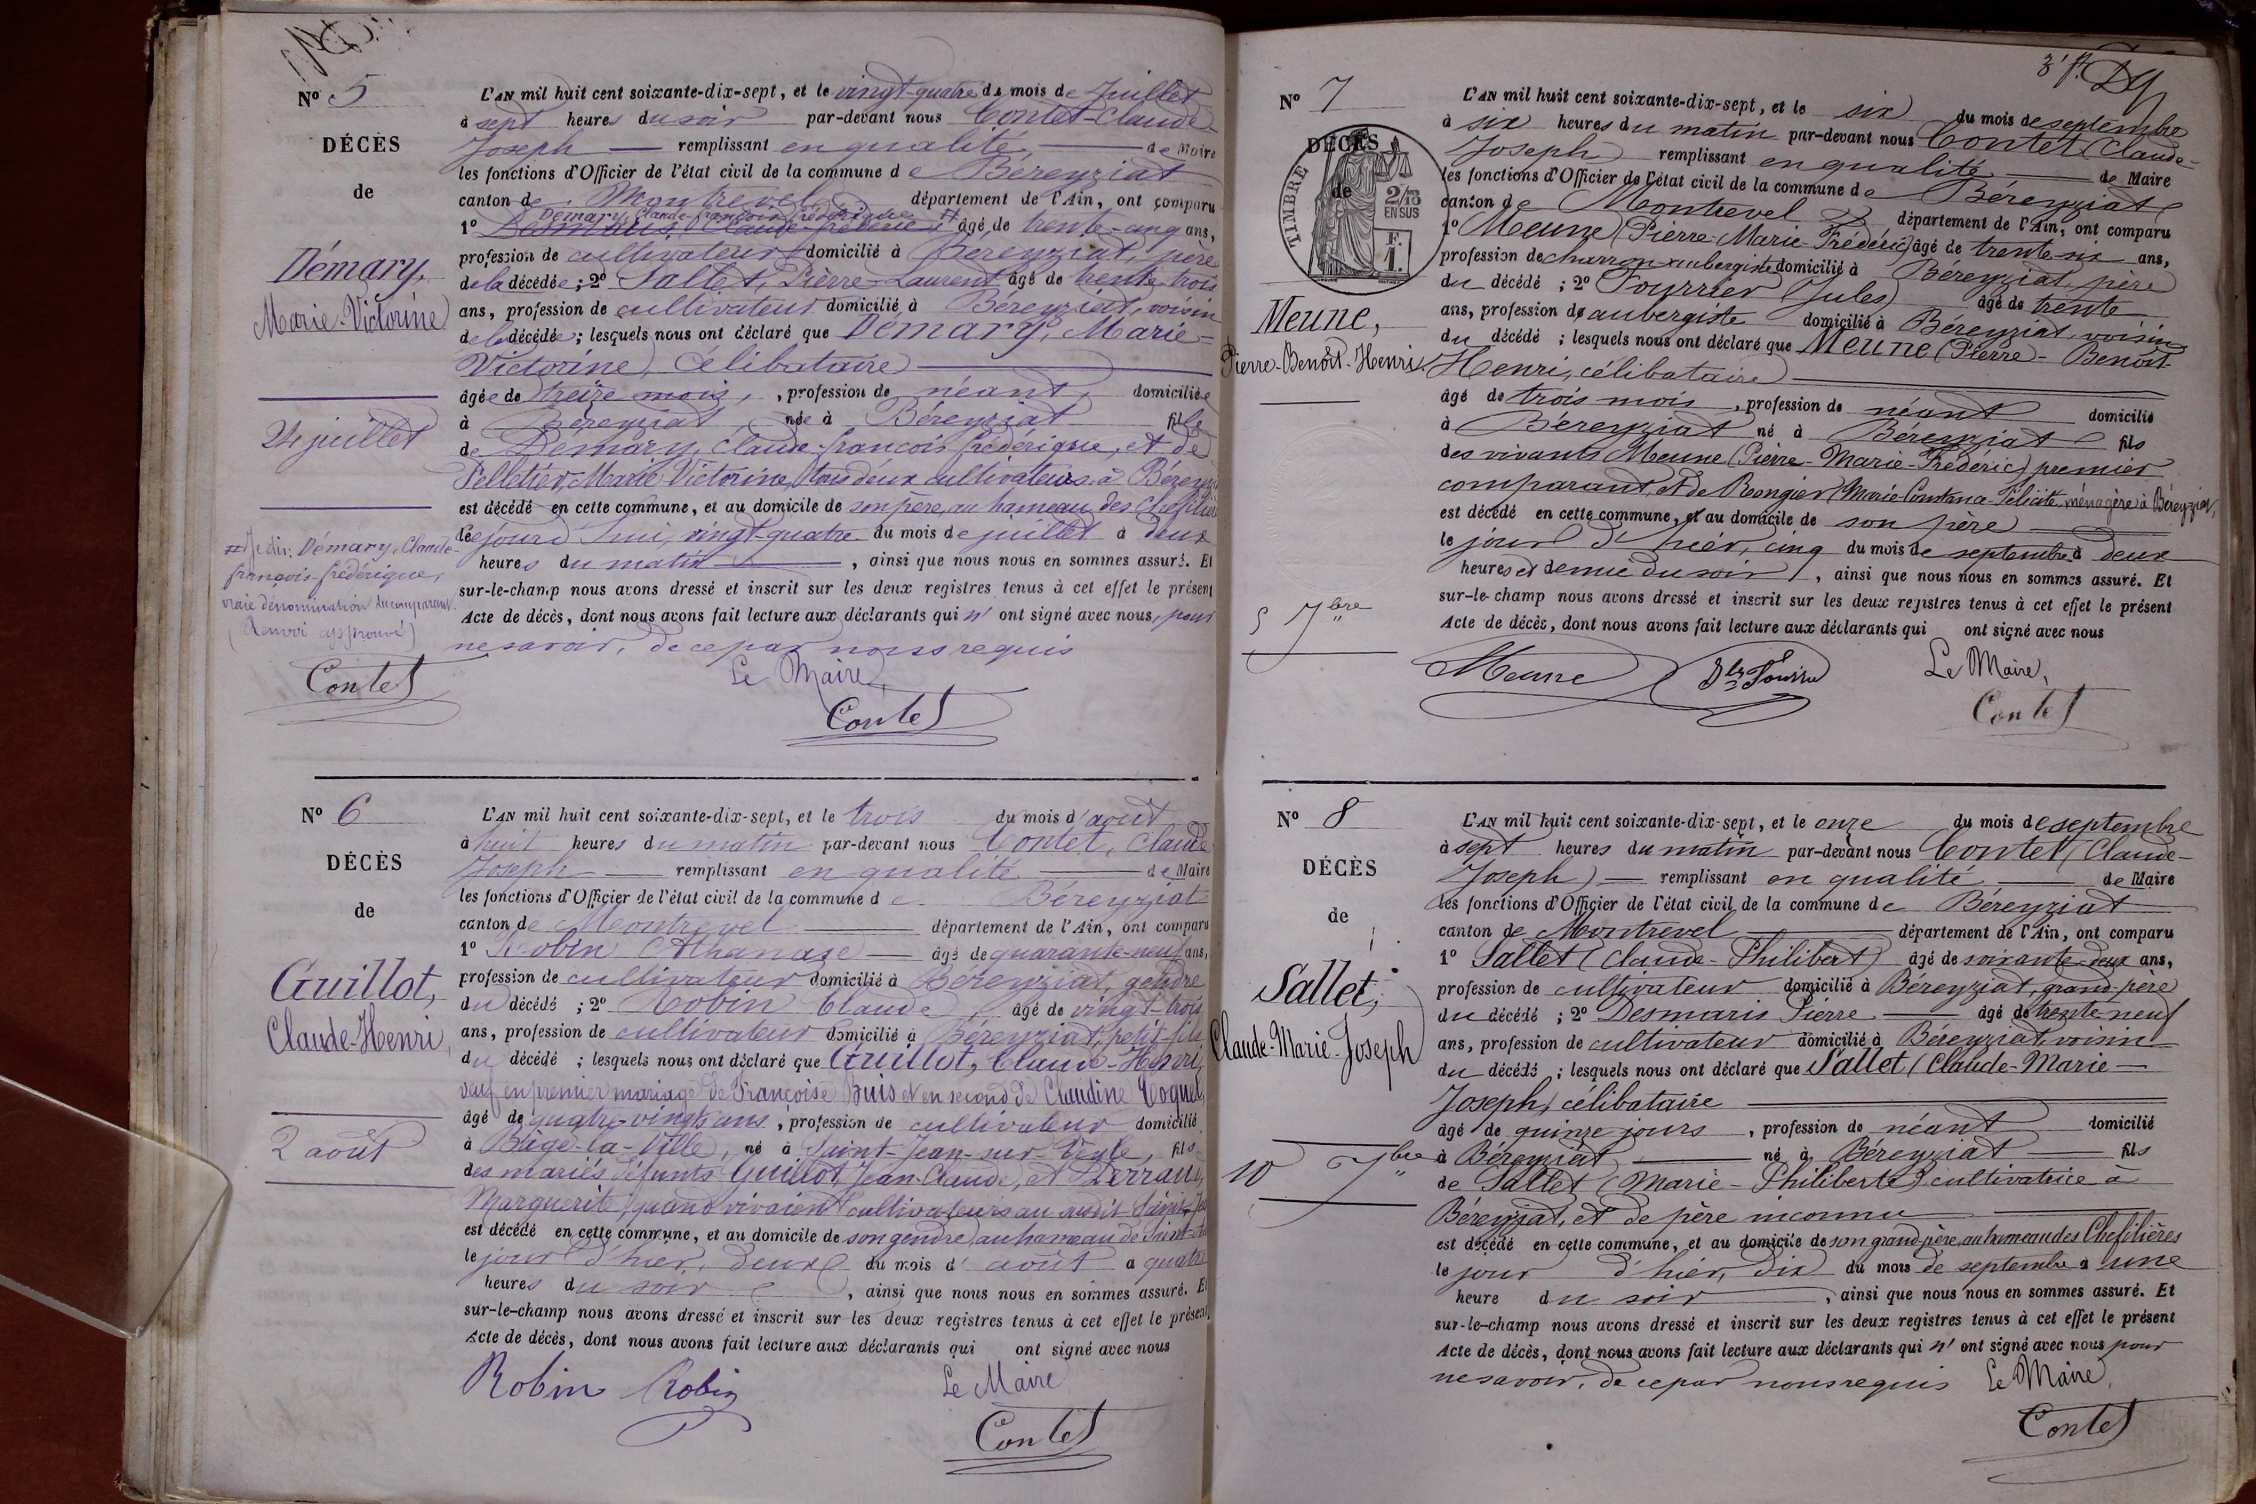 N° 5
DÉCÈS
de
Démary,
Marie-Victorine
24 juillet
dis: Démary, Claude-
françois-frédérique,
vraie dénomination du comparant.
(Renvoi approuvé)
Contet
L'AN mil huit cent soixante-dix-sept, et le vingt-quatre du mois de Juillet
à sept heures du soir par-devant nous Contet Claude-
Joseph remplissant en qualité de Maire
les fonctions d'Officier de l'état civil de la commune de Béreyziat
canton de Montrevel département de l'Ain, ont comparu
Démary, Claude-françois-frédérique
1° âgé de trente-cinq ans,
profession de cultivateur domicilié à Béreyziat, père
de la décédée ; 2° Sallet, Pierre-Laurent âgé de trente trois
ans, profession de cultivateur domicilié à Béreyziat, voisin
de la décédée ; lesquels nous ont déclaré que Démary, Marie-
Victorine, Célibataire
âgée de treize mois, profession de néant, domiciliée
à Béreyziat née à Béreyziat fille
de Démary, Claude-françois-frédérique, et de
Pelletier, Marie Victorine, tous deux cultivateurs à
est décédé en cette commune, et au domicile de son père, au hameau des
le jour d'hui, vingt-quatre du mois de juillet à deux
heures du matin, ainsi que nous nous en sommes assuré. Et
sur-le-champ nous avons dressé et inscrit sur les deux registres tenus à cet effet le présent
Acte de décès, dont nous avons fait lecture aux déclarants qui n' ont signé avec nous, pour
ne savoir, de ce par nous requis
Le Maire,
Contet
N° 6
DÉCÈS
de
Guillot,
Claude-Henri,
2 août
L'AN mil huit cent soixante-dix-sept, et le trois du mois d'août
à huit heures du matin par-devant nous Contet, Claude
Joseph remplissant en qualité de Maire
les fonctions d'Officier de l'état civil de la commune de Béreyziat
canton de Montrevel département de l'Ain, ont comparu
1° Robin Athanase âgé de quarante-neuf ans,
profession de cultivateur domicilié à Béreyziat, gendre
du décédé ; 2° Robin Claude, âgé de vingt-trois
ans, profession de cultivateur domicilié à Béreyziat, petit-fils
du décédé ; lesquels nous ont déclaré que Guillot, Claude-Henri,
veuf en premier mariage de Françoise Buis et en second de Claudine Coquel,
âgé de quatre-vingts ans, profession de cultivateur domicilié
à Bâgé-la-Ville, né à Saint-Jean-sur-Veyle, fils
des mariés défunts Guillot, Jean-Claude, et
Marguerite quand vivaient cultivateurs au susdit
est décédé en cette commune, et au domicile de son gendre au hameau de
le jour d'hier, deux du mois d'août à quatre
heures du soir, ainsi que nous nous en sommes assuré. Et
sur-le-champ nous avons dressé et inscrit sur les deux registres tenus à cet effet le présent
Acte de décès, dont nous avons fait lecture aux déclarants qui ont signé avec nous
Robin Robin Le Maire
Contet
3e f.
N° 7
DÉCÈS
de
TIMBRE
2/10
EN SUS
F.
1.
Meune,
Pierre-Benoît-Henri.
5 7bre
L'AN mil huit cent soixante-dix-sept, et le six du mois de septembre
à six heures du matin par-devant nous Contet (Claude-
Joseph) remplissant en qualité de Maire
les fonctions d'Officier de l'état civil de la commune de Béreyziat
canton de Montrevel département de l'Ain, ont comparu
1° Meune (Pierre-Marie-Frédéric) âgé de trente-six ans,
profession de charron aubergiste domicilié à Béreyziat, père
du décédé ; 2° Fourrier (Jules) âgé de trente
ans, profession de aubergiste domicilié à Béreyziat, voisin
du décédé ; lesquels nous ont déclaré que Meune (Pierre-Benoît
Henri, célibataire
âgé de trois mois, profession de néant domicilié
à Béreyziat né à Béreyziat fils
des vivants Meune (Pierre-Marie-Frédéric) premier
comparant, et de Rongier (Marie-Constance-Félicité, ménagère à Béreyziat,
est décédé en cette commune, et au domicile de son père
le jour d'hier, cinq du mois de septembre à deux
heures et demie du soir, ainsi que nous nous en sommes assuré. Et
sur-le-champ nous avons dressé et inscrit sur les deux registres tenus à cet effet le présent
Acte de décès, dont nous avons fait lecture aux déclarants qui ont signé avec nous
Meune Le Maire,
Contet
N° 8
DÉCÈS
de
Sallet,
Claude-Marie-Joseph
10 7bre
L'AN mil huit cent soixante-dix-sept, et le onze du mois de septembre
à sept heures du matin par-devant nous Contet (Claude-
Joseph) remplissant en qualité de Maire
les fonctions d'Officier de l'état civil de la commune de Béreyziat
canton de Montrevel département de l'Ain, ont comparu
1° Sallet (Claude-Philibert) âgé de soixante-deux ans,
profession de cultivateur domicilié à Béreyziat, grand-père
du décédé ; 2° Desmaris Pierre âgé de trente-neuf
ans, profession de cultivateur domicilié à Béreyziat, voisin
du décédé ; lesquels nous ont déclaré que Sallet (Claude-Marie-
Joseph, célibataire
âgé de quinze jours, profession de néant domicilié
à Béreyziat né à Béreyziat fils
de Sallet (Marie-Philiberte) cultivatrice à
Béreyziat, et de père inconnu
est décédé en cette commune, et au domicile de son grand-père, au hameau des Chefilières
le jour d'hier, dix du mois de septembre à une
heure du soir, ainsi que nous nous en sommes assuré. Et
sur-le-champ nous avons dressé et inscrit sur les deux registres tenus à cet effet le présent
Acte de décès, dont nous avons fait lecture aux déclarants qui n' ont signé avec nous pour
ne savoir, de ce par nous requis Le Maire,
Contet